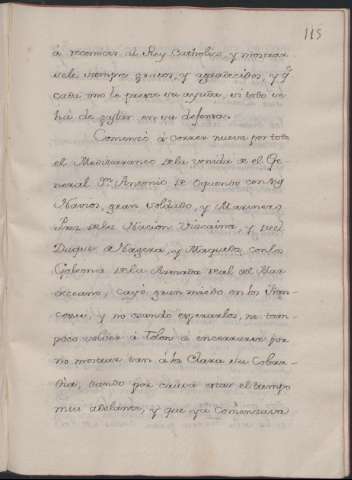 115
á reconocer al Rey Catholico, y mostrar
sele siempre gratos, y agradecidos, y q.e
cada uno le preste su ayuda, si todo se
ha de gastar en su defensa.
Comenzó á correr nueva por todo
el Mediterraneo de la venida de el Ge
neral Dn. Antonio de Oquendo con
Navios, gran soldado, y Marinero,
de la Nacion Viscaina, y del
Duque de Nagera, y Maqueda, con los
Galeones de la Armada real del Mar
occeano, cayó gran miedo en los Fran-
ceses, y no osando esperarlos, ni tam-
poco volver á Tolon á encerrarse por
no mostrar tan á la clara su cobar-
dia, dando por causa estar el tiempo
muy adelante, y que ya comenzava